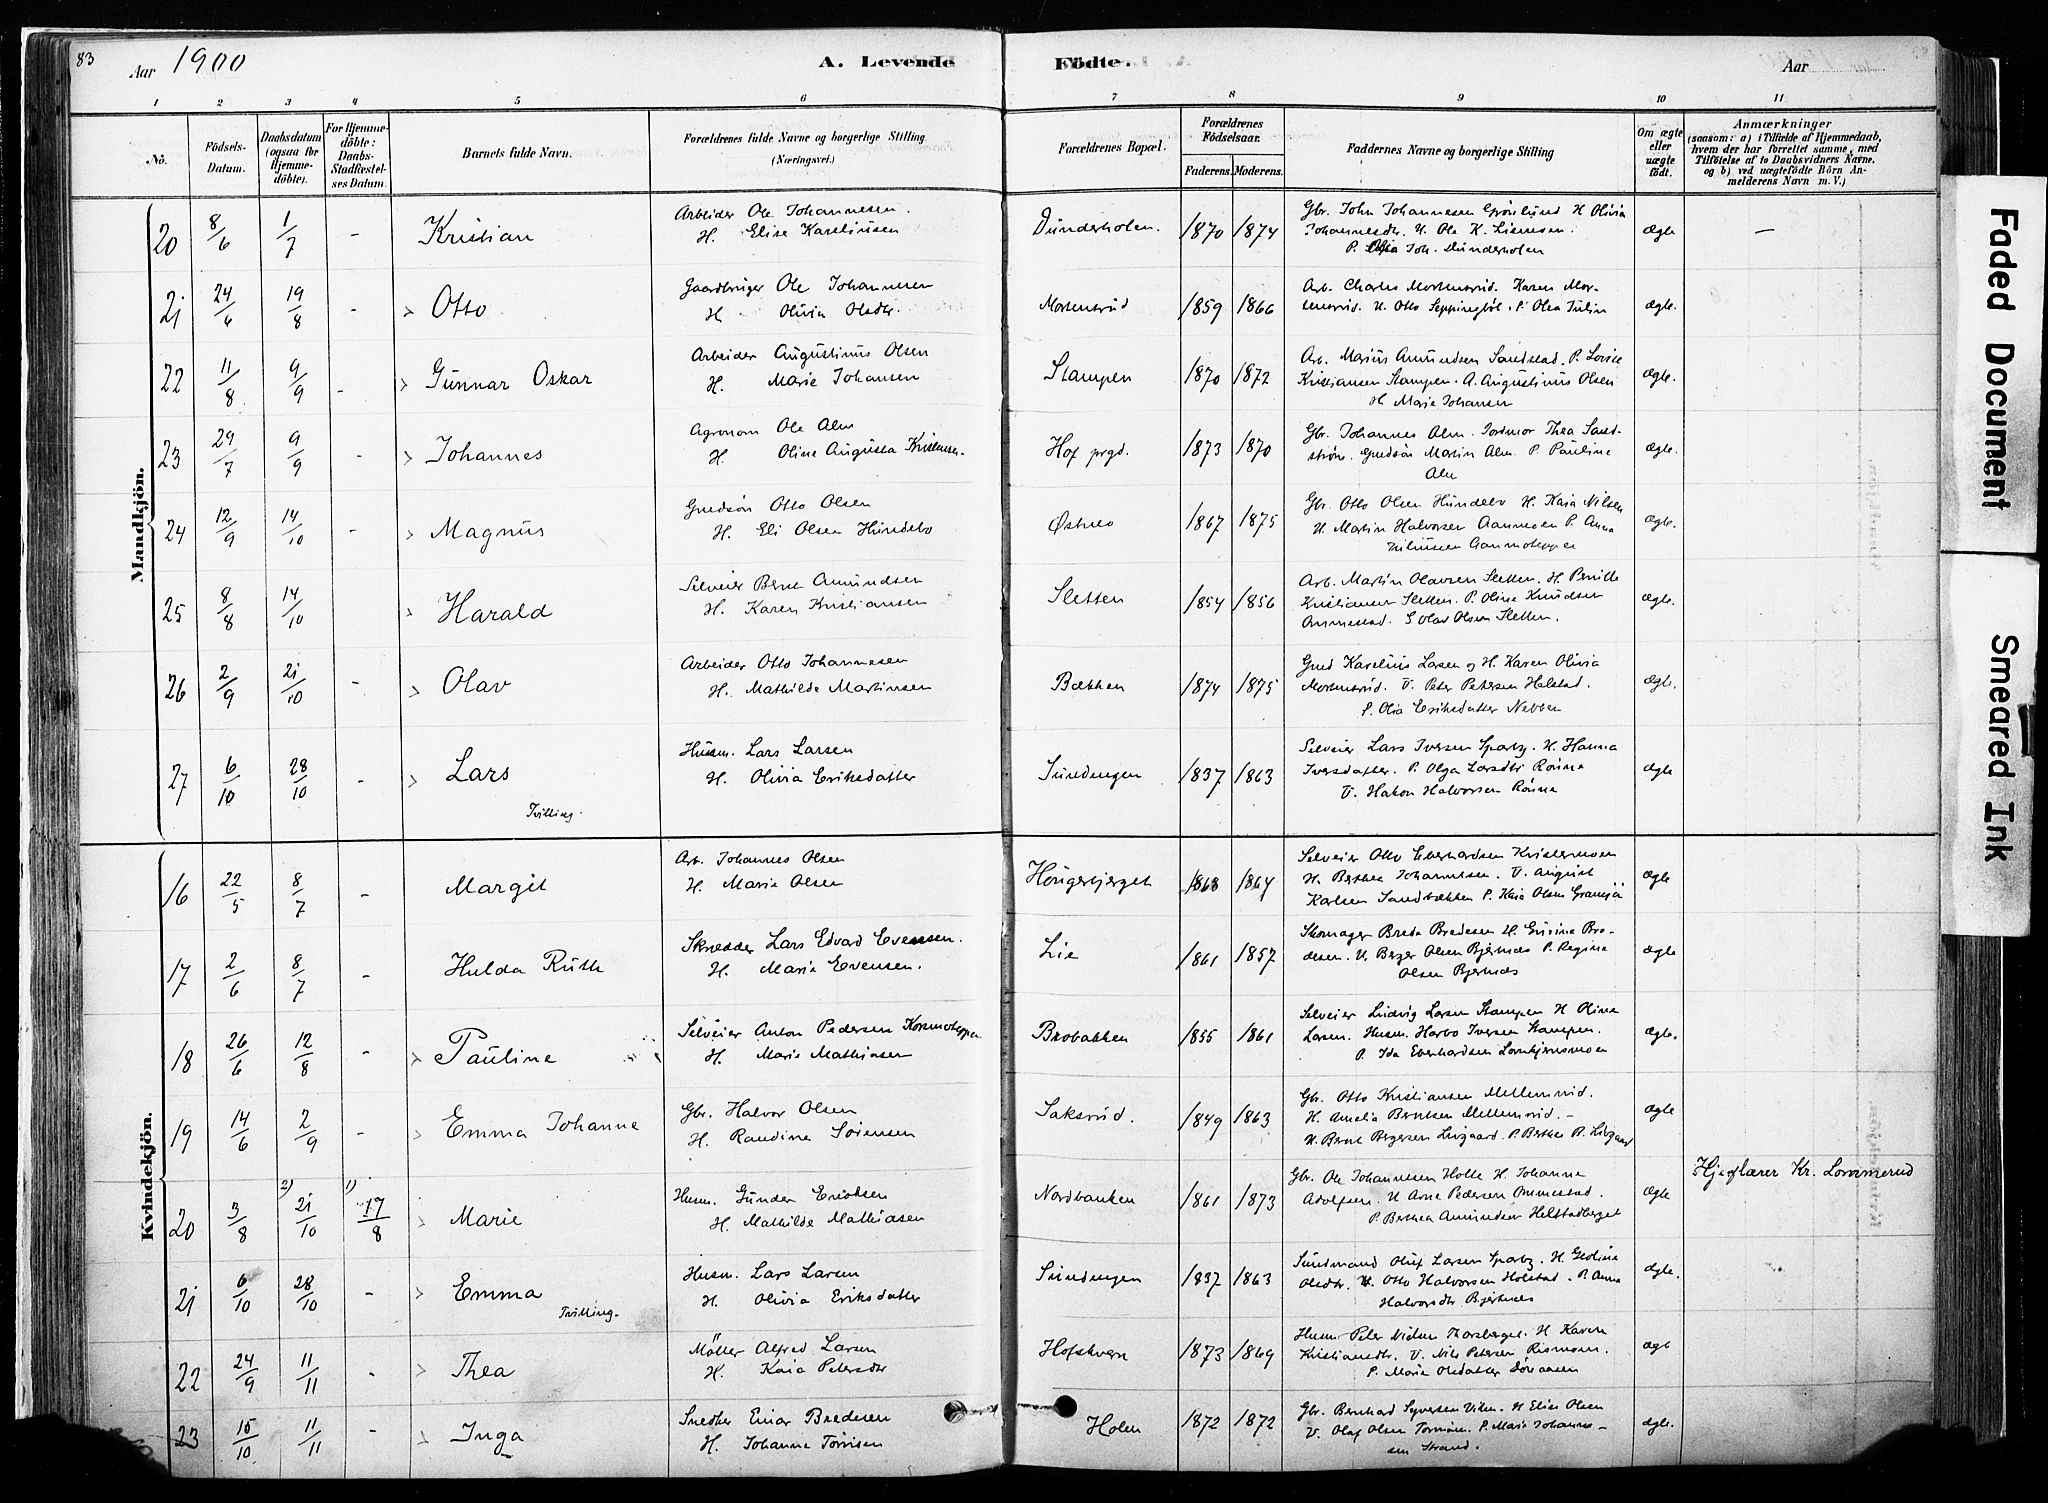 83
Aar 1900
A. Levende Födte.
Aar
1 2 3 4 5 6 7 8 9 10 11
No.
Födsels-Datum.
Daabsdatum (ogsaa for Hjemme-döbte).
For Hjemme-döbte: Daabs-Stadfæstel-ses Datum.
Barnets fulde Navn.
Forældrenes fulde Navne og borgerlige Stilling
(Næringsvei.)
Forældrenes Bopæl.
Forældrenes Födselsaar.
Faderens. Moderens.
Faddernes Navne og borgerlige Stilling
Om ægte eller uægte födt.
Anmærkninger
(saasom: a) i Tilfælde af Hjemmedaab,
hvem der har forrettet samme, med
Tilföielse af to Daabsvidners Navne.
og b) ved uægtefödte Börn An-
melderens Navn m. V.)
Mandkjön.
20 8/6 1/7 - Kristian
Arbeider Ole Johannesen.
H. Elise Karelinsen
Dunderholen. 1870 1874
Gbr. John Johannesen Grönlund H Olivia
Johannesdtr. U. Ole K. Liensen.
P. Olia Joh. Dunderholen
ægte -
21 24/6 19/8 - Otto
Gaardbruger Ole Johannesen
H. Olivia Olsdtr.
Mortensrud 1859 1866
Arb. Charles Mortensrud. Karen Mor-
tensrud. U. Otto Seppingböl. P. Olea Julin
ægte.
22 11/8 9/9 - Gunnar Oskar
Arbeider Augustinus Olsen
H. Marie Johansen
Stampen 1870 1872
Arb. Marius Amundsen Sandstad. P. Lovise
Kristiansen Stampen. A. Augustinus Olsen
H. Marie Johansen
ægte.
23 29/7 9/9 Johannes
Agronom Ole Alm
H. Oline Augusta Kristensen.
Hof prgd. 1873 1870
Gbr. Johannes Alm. Jordmor Thea Sand-
ström. Grudsön Martin Alm. P. Pauline
Alm
ægte.
24 12/9 14/10 - Magnus
Grudsön Otto Olsen
H. Eli Olsen Hundebo
Østneo 1867 1875
Gbr. Otto Olsen Hundebo H. Kaia Nilsen
U. Martin Halvorsen Aanmoen P. Anna
Juliussen Aanmoteppen
ægte.
25 8/8 14/10 - Harald
Selveier Bernt Amundsen
H. Karen Kristiansen
Sletten 1854 1856
Arb. Martin Olavsen Sletten. H. Bernitte
Kristiansen Sletten. P. Oline Knudsen
Ommestad. S Olav Olsen Sletten.
ægte.
26 2/9 21/10 - Olav
Arbeider Otto Johannesen
H. Mathilde Martinsen
Bækken 1874 1875
Grud Karelius Larsen og H. Karen Olivia
Mortensrud. U. Peter Petersen Helstad.
P. Olia Eriksdatter Nebben
ægte.
27 6/10 28/10 - Lars
Tvilling.
Husm. Lars Larsen
H. Olivia Eriksdatter
Sundengen 1837 1863
Selveier Lars Iversen Sparby. H. Hanna
Iversdatter. P. Olga Larsdtr Rönne
U. Hakon Halvorsen Rönne
ægte
Kvindekjön.
16 22/5 8/7 - Margit
Arb. Johannes Olsen
H. Marie Olsen
Hougerbjerget 1868 1864
Selveier Otto Eberhardsen Kristermoen
H. Berthea Johannesen. U. August
Karlsen Sandbækken P. Kaia Olsen Gransjö
ægte
17 2/6 8/7 - Hulda Ruth
Skrædder Lars Edvard Evensen.
H. Marie Evensen.
Lie 1861 1857
Skomager Brede Bredesen H. Grurine Bre-
desen. U. Berger Olsen Bjernæs P. Regine
Olsen Bjernæs
ægte
18 26/6 12/8 - Pauline
Selveier Anton Pedersen Korsmoteppen
H. Marie Mathiasen
Brobakken 1855 1861
Selveier Ludvig Larsen Stampen H Oline
Larsen. Husm. Harbo Iversen Stampen.
P. Ida Eberhardsen Lonkjernsmoen
ægte.
19 14/6 2/9 - Emma Johanne
Gbr. Halvor Olsen
H. Randine Sörensen
Saksrud. 1849 1863
Gbr. Otto Kristiansen Mellemrud.
H. Amelia Berntsen Mellemrud. -
U. Bernt Bergersen Livgaard. P. Berthe B. Livgaard
ægte
20 3/8 2) 21/10 1) 17/8 Marie
Husm. Gunder Eriksen
H. Mathilde Mathiasen
Nordbanken 1861 1873
Gbr. Ole Johannesen Holte H. Johanne
Adolfsen. U Arne Pedersen Ommestad.
P. Berthea Amundsen Helstadberget
ægte
Hjeplærer Kr. Lommerud
21 6/10 28/10 - Emma
Tvilling.
Husm. Lars Larsen
H. Olivia Eriksdatter
Sundengen 1837 1863
Sundmand Oluf Larsen Sparby. H Gedine
Olsdtr. U. Otto Halvorsen Holstad. P. Anna
Halvorsdtr Bjertnæs
ægte.
22 24/9 11/11 - Thea
Möller Alfred Larsen
H. Kaia Petersdtr
Hofskvern 1873 1869
Husm. Peter Nielsen Thorsberget. H Karen
Kristiansdtr. U. Nils Petersen Rismoen.
P. Marie Olsdatter Döraasen
ægt
23 15/10 11/11 - Inga
Snedker Einar Bredesen
H. Johanne Torrisen
Holen 1872 1872
Gbr. Bernhard Syversen Viken. H Elise Olsen
U. Olaf Olsen Tormoen. P. Marie Johannes-
sen Strand.
ægte.
Faded Document
Smeared Ink